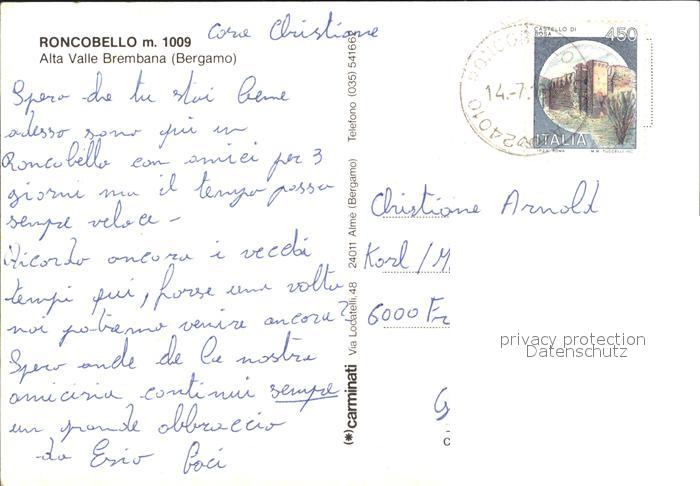 RONCOBELLO m. 1009
Alta Valle Brembana (Bergamo)
Cara Christiane
Spero che tu stai bene
adesso sono qui in
Roncobello con amici per 3
giorni ma il tempo passa
sempre veloce -
Ricordo ancora i vecchi
tempi qui, forse una volta
noi potremo venire ancora?
Spero anche che la nostra
amicizia continui sempre
un grande abbraccio
da Enio Baci
(*) carminati Via Locatelli, 48 24011 Almè (Bergamo) Telefono (035) 54166
CASTELLO DI ROSA
450
ITALIA
I.P.Z.S. ROMA M.M. TUCCELLI INC.
24010 RONCOB
14.-7.
Christiane Arnold
Karl / M
6000 Fr
privacy protection
Datenschutz